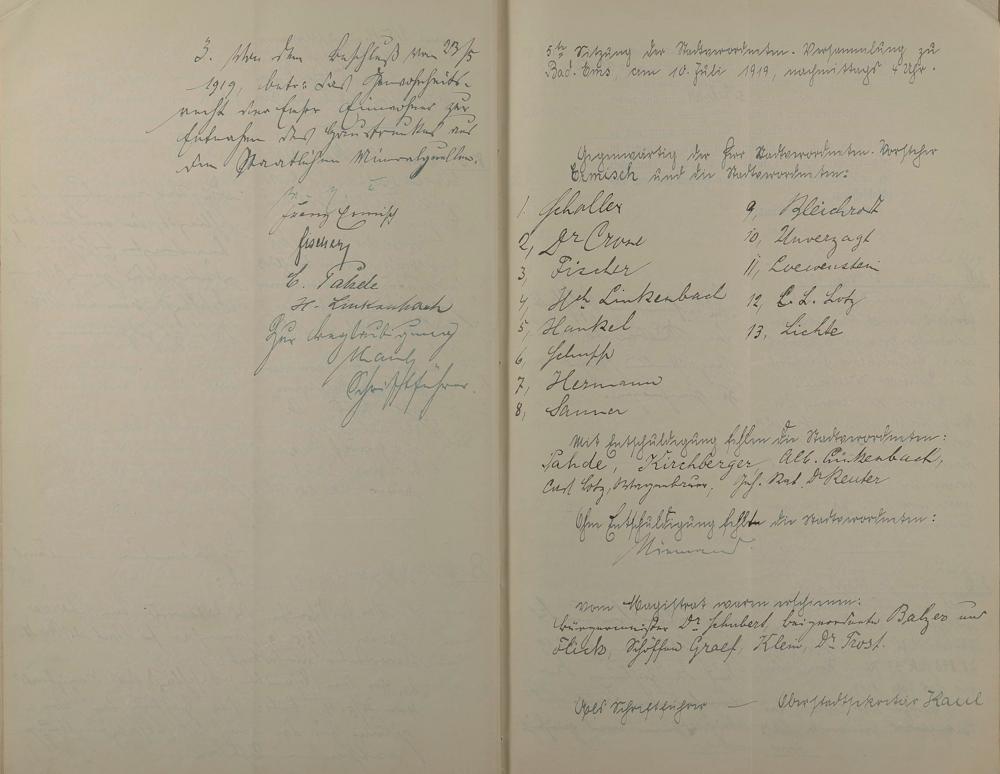 3. Von dem Beschluß vom 23/5
1919, betr: das Gewohnheits-
recht der Emser Einwohner zur
Entnahme des Haustrunkes aus
den Staatlichen Mineralquellen.
Franz Ermisch
Fischer
C. Pahde
H. Linkenbach
Zur Beglaubigung
Kaul
Schriftführer.
5te Sitzung der Stadtverordneten-Versammlung zu
Bad-Ems, am 10. Juli 1919, nachmittags 4 Uhr.
Gegenwärtig der Herr Stadtverordneten-Vorsteher
Ermisch und die Stadtverordneten:
1. Schaller
2, Dr Crone
3, Fischer
4, Hch Linkenbach
5, Hankel
6, Schupp
7, Hermann
8, Sanner
9, Bleichrodt
10, Unverzagt
11, Loewenstein
12, C. L. Lotz
13, Lichte
Mit Entschuldigung fehlen die Stadtverordneten:
Pahde, Kirchberger, Alb. Linkenbach,
Carl Lotz, Dr Reuter
Ohne Entschuldigung fehlte die Stadtverordneten:
Niemand.
Vom Magistrat waren erschienen:
Bürgermeister Dr Schubert, Beigeordnete Balzer und
Flick, Schöffen Graef, Klein, Dr Trost.
Als Schriftführer — Oberstadtsekretär Kaul